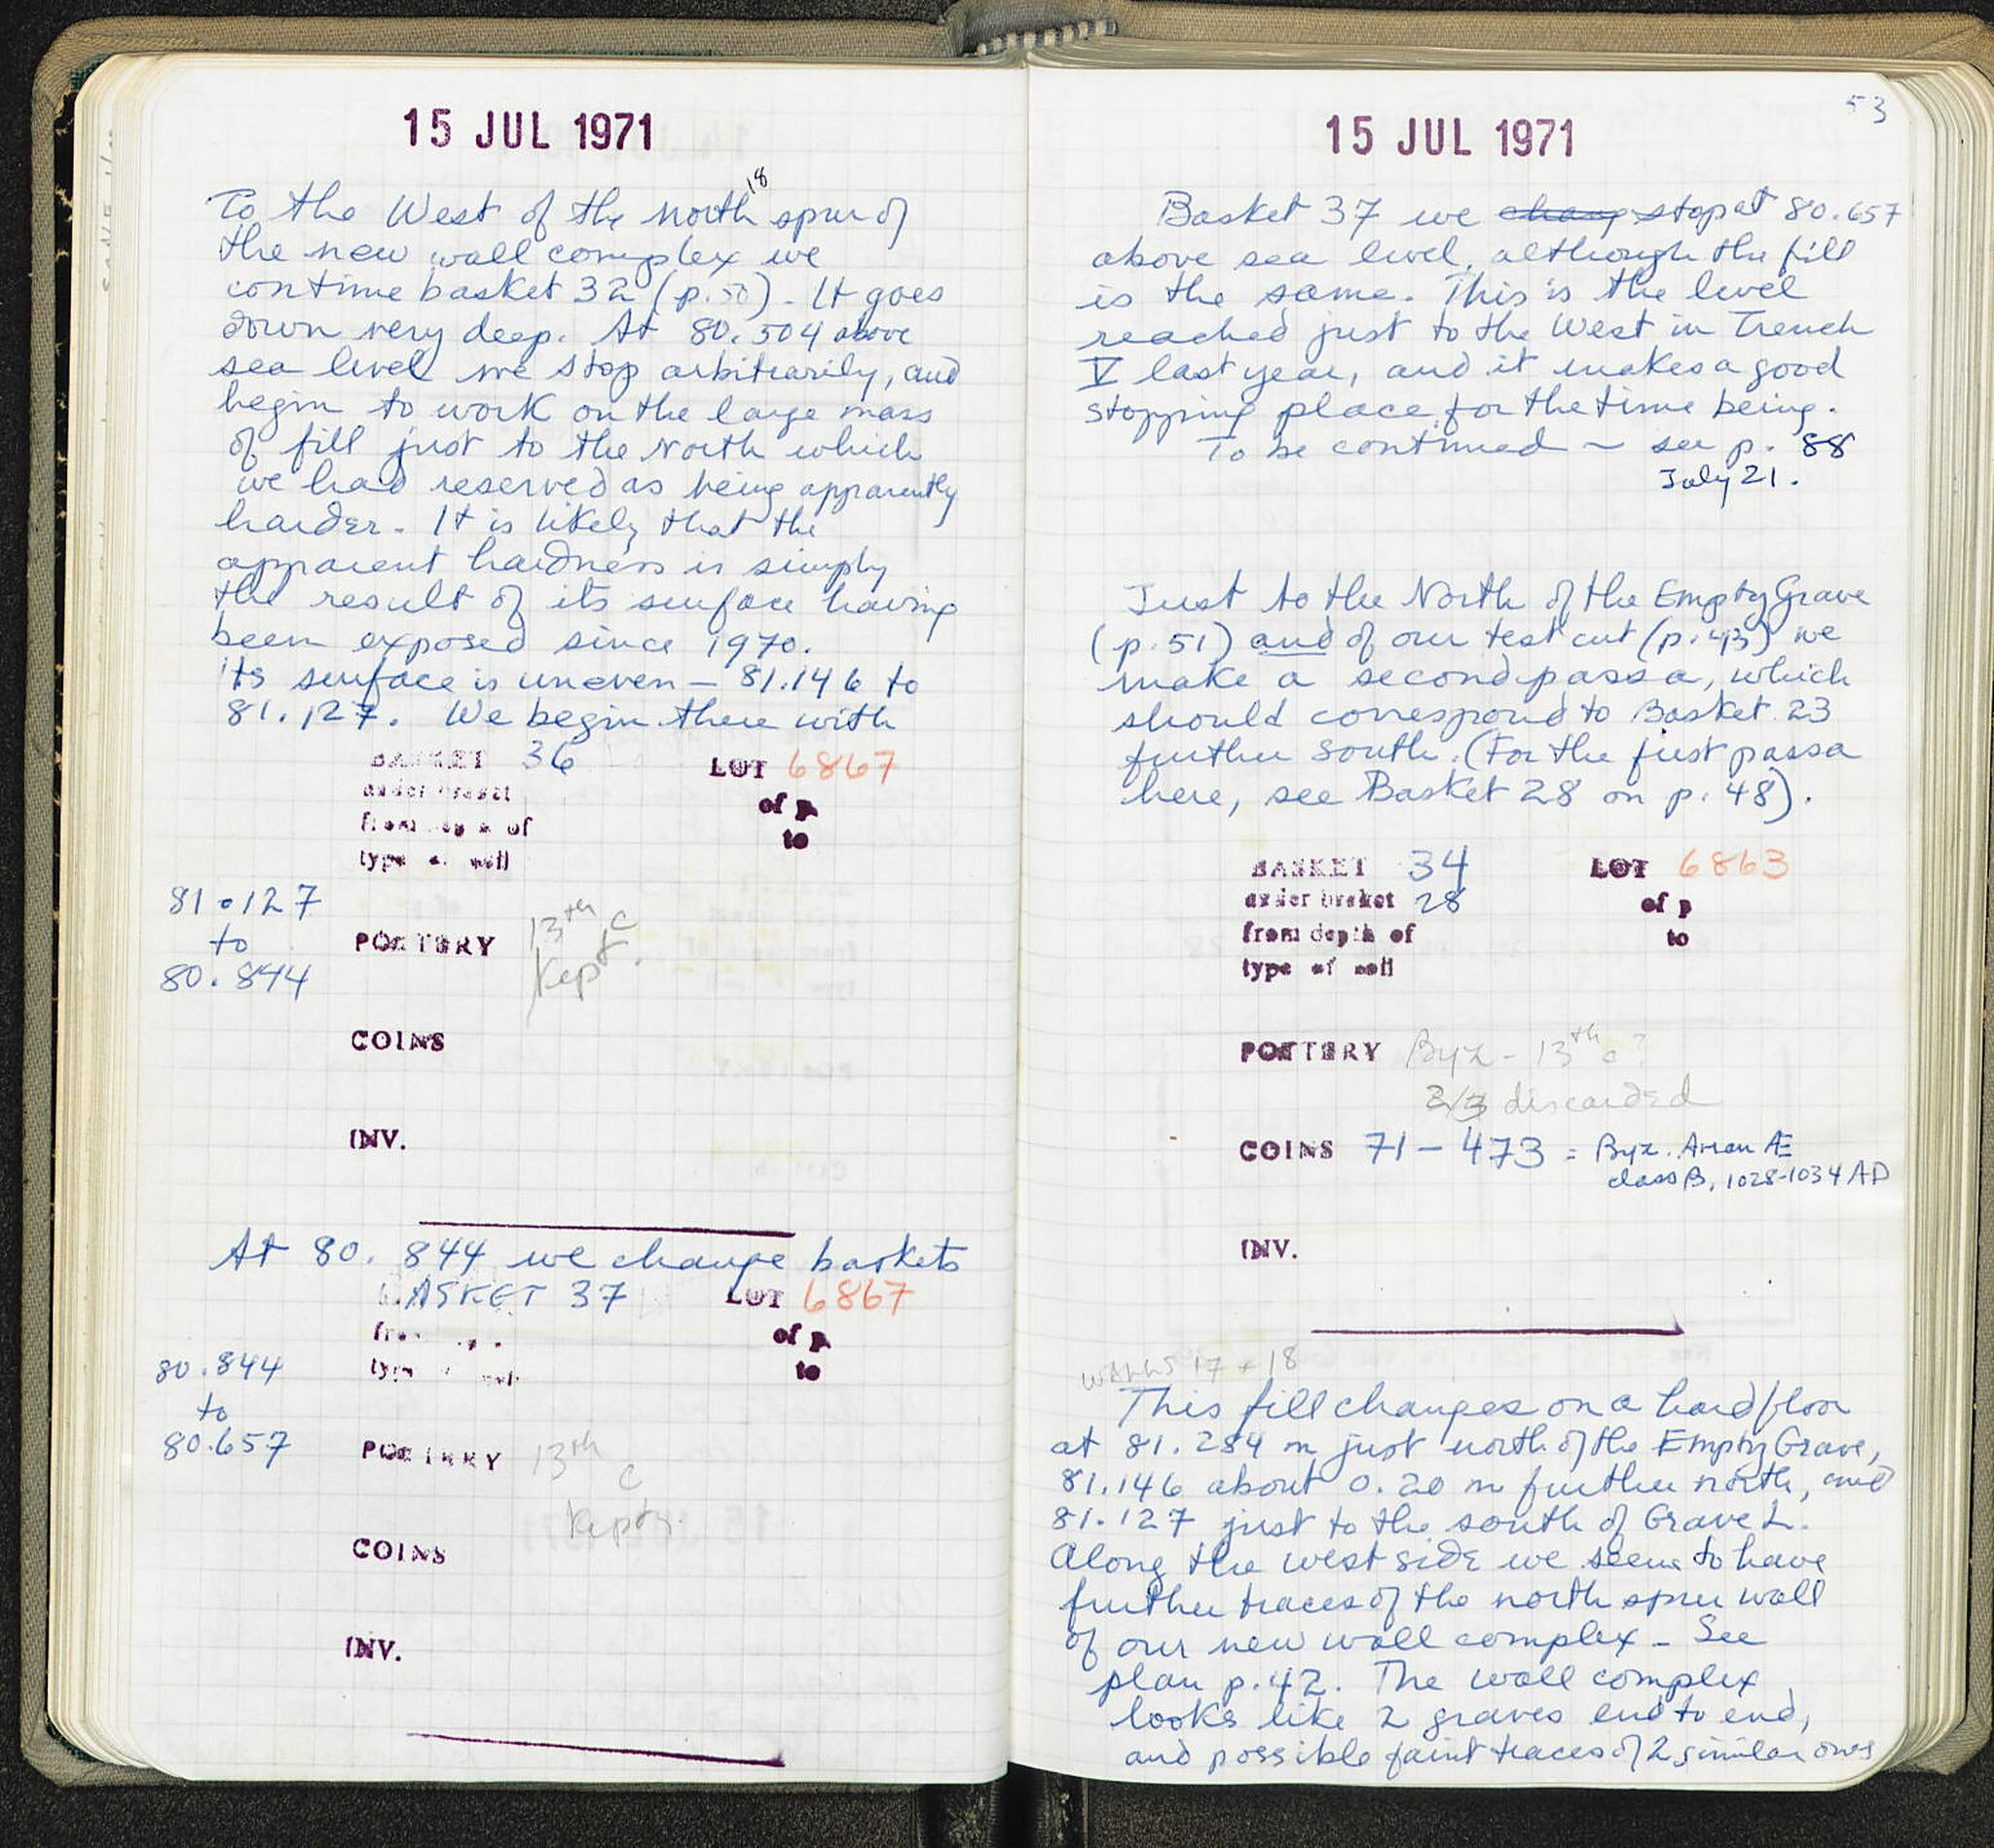 15 JUL 1971
18
To the West of the north spur of
the new wall complex we
continue basket 32 (p. 50). It goes
down very deep. At 80.504 above
sea level we stop arbitrarily, and
begin to work on the large mass
of fill just to the North which
we had reserved as being apparently
harder. It is likely that the
apparent hardness is simply
the result of its surface having
been exposed since 1970.
Its surface is uneven — 81.146 to
81.127. We begin there with
BASKET 36 LOT 6867
under basket of p
from depth of to
type of soil
81.127
to
80.844
POTTERY 13th c
Kept.
COINS
INV.
At 80.844 we change baskets
BASKET 37 LOT 6867
of p
type of soil to
80.844
to
80.657
POTTERY 13th c
Kept.
COINS
INV.
53
15 JUL 1971
Basket 37 we chang stop at 80.657
above sea level, although the fill
is the same. This is the level
reached just to the West in Trench
V last year, and it makes a good
stopping place for the time being.
To be continued ~ see p. 88
July 21.
Just to the North of the Empty Grave
(p. 51) and of our test cut (p. 43) we
make a second passa, which
should correspond to Basket 23
further south. (For the first passa
here, see Basket 28 on p. 48).
BASKET 34 LOT 6863
under basket 28 of p
from depth of to
type of soil
POTTERY Byz - 13th c?
2/3 discarded
COINS 71-473 = Byz. Anon Æ
class B, 1028-1034 AD
INV.
WALLS 17 + 18
This fill changes on a hard floor
at 81.284 m just north of the Empty Grave,
81.146 about 0.20 m further north, and
81.127 just to the south of Grave L.
Along the west side we seem to have
further traces of the north spur wall
of our new wall complex - See
plan p. 42. The wall complex
looks like 2 graves end to end,
and possible faint traces of 2 similar ones